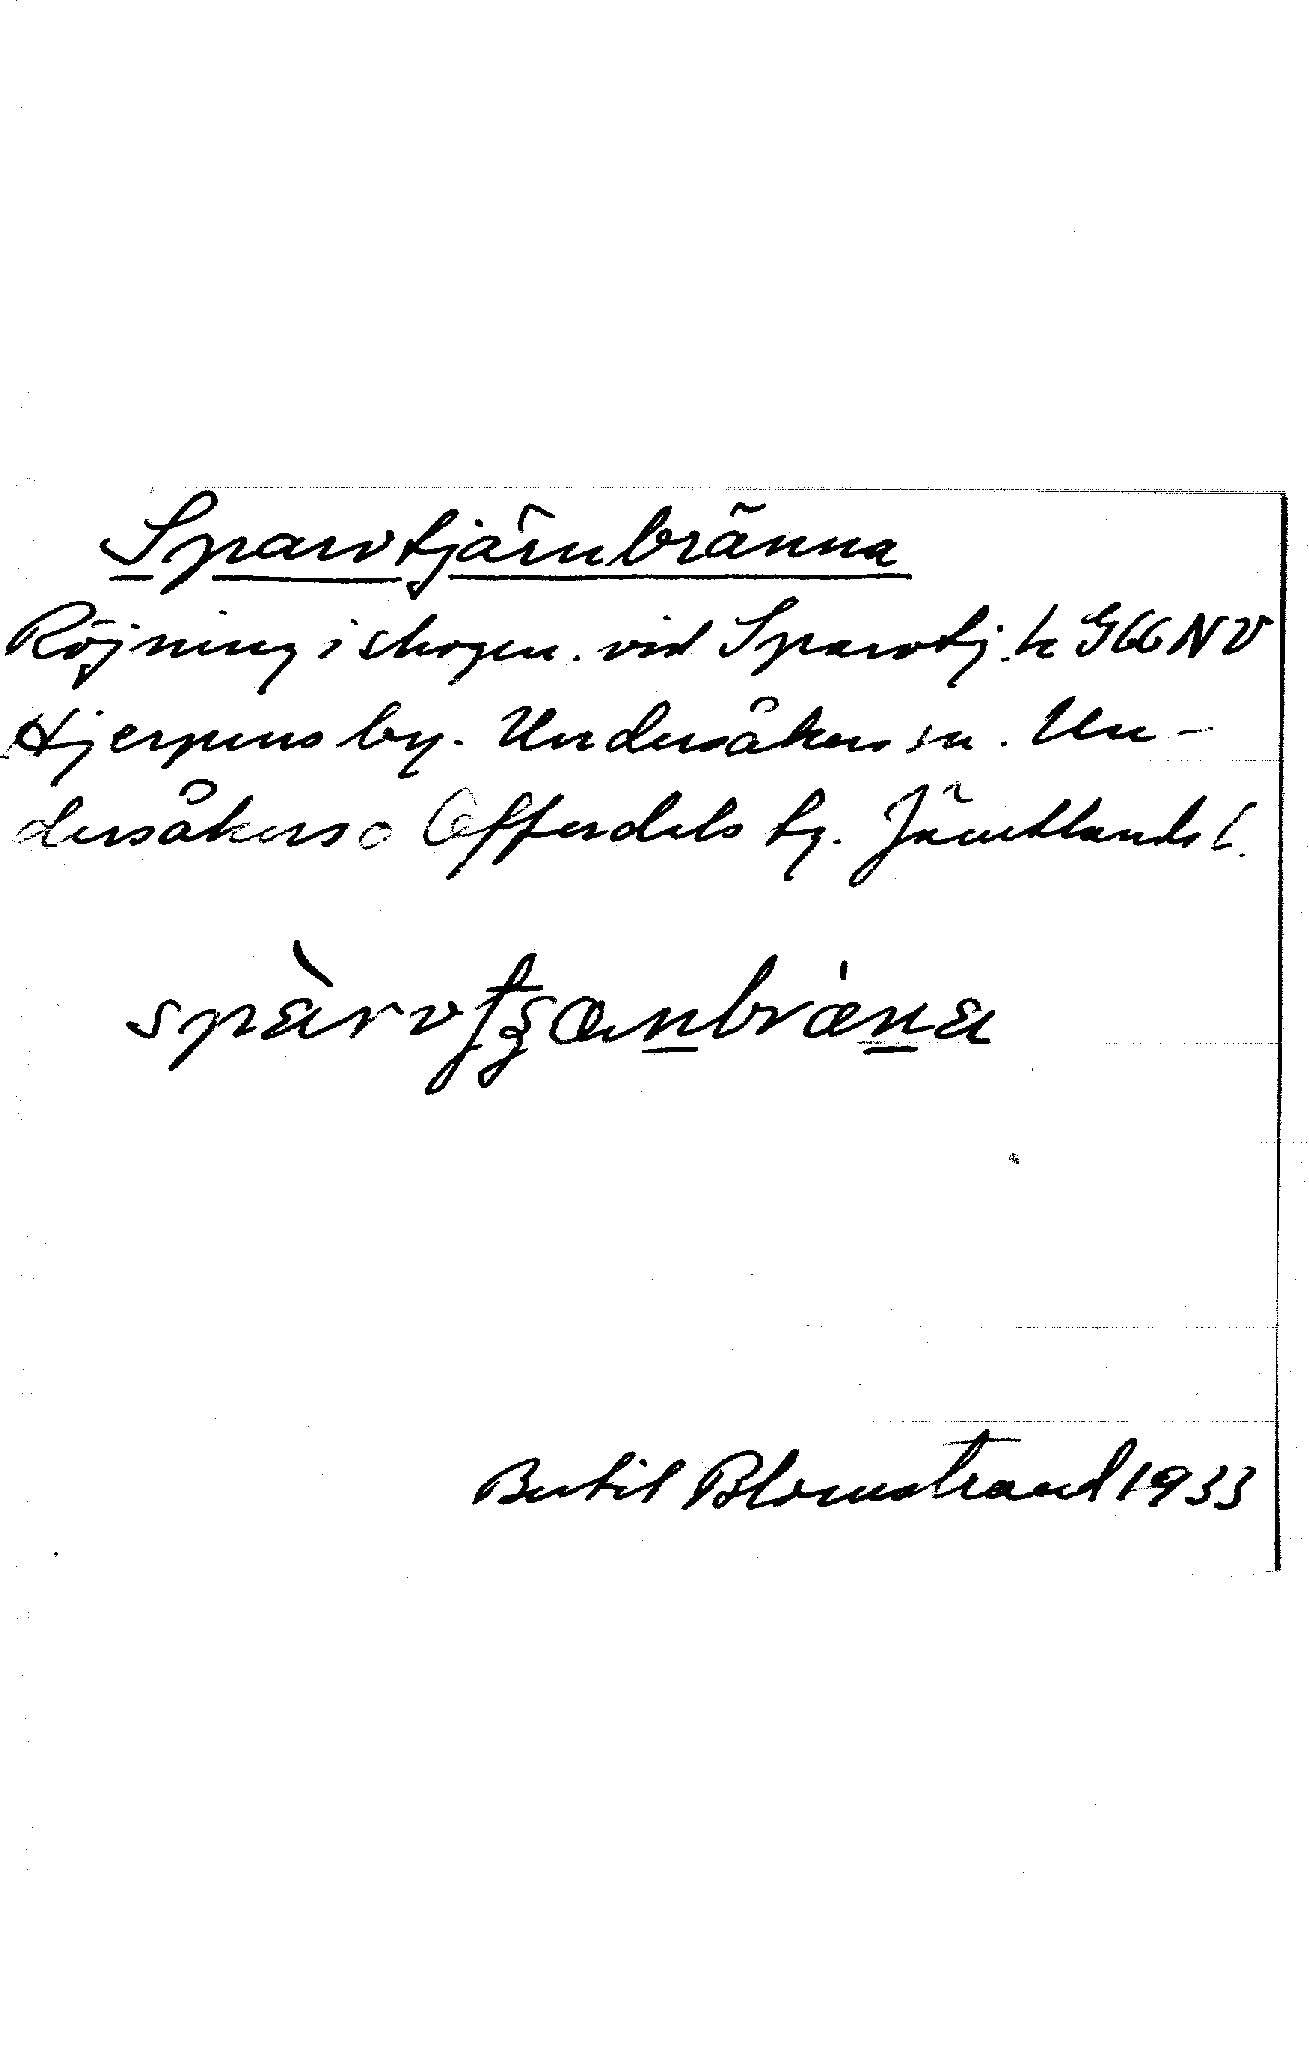 Sparvtjärnbränna
Röjning i skogen. vid Sparvtj. k G66 NV
Hjerpens by. Undersåkers sn. Un-
dersåkers o Offerdals tg. Jämtlands l.
spàrvtʒænbræna
Bertil Blomstrand 1933